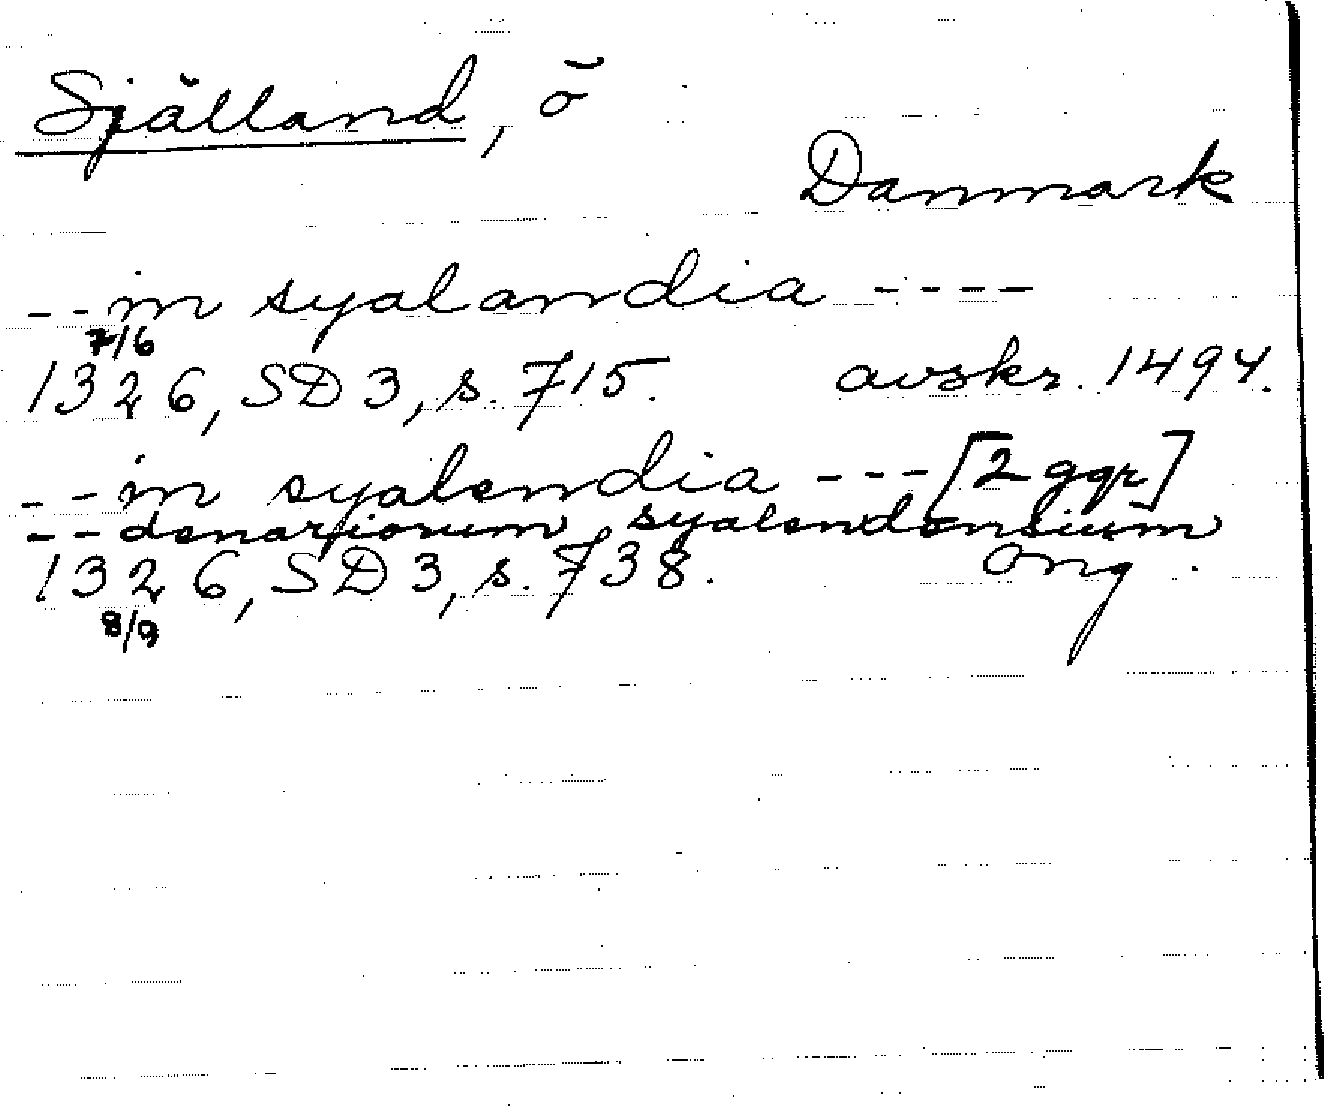 Själland, ö
Danmark
--in syalandia ----
7/6
1326, SD 3, s. 715. avskr. 1494.
--in syalendia ---[2 ggr]
--denariorum syalendensium
1326, SD 3, s. 738. orig.
8/9